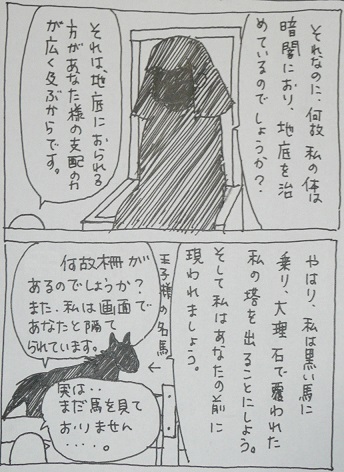 それなのに、何故 私の体は
暗闇におり、地底を治
めているのでしょうか?
それは、地底におられる
方があなた様の支配の力
が広く及ぶからです。
やはり、私は黒い馬に
乗り、大理石で覆われた
私の塔を出ることにしよう。
そして私はあなたの前に
現われましょう。
王子様の名馬
何故柵が
あるのでしょうか?
また、私は画面で
あなたと隔て
られています。
実は・・
まだ馬を見て
おりません
・・・・。